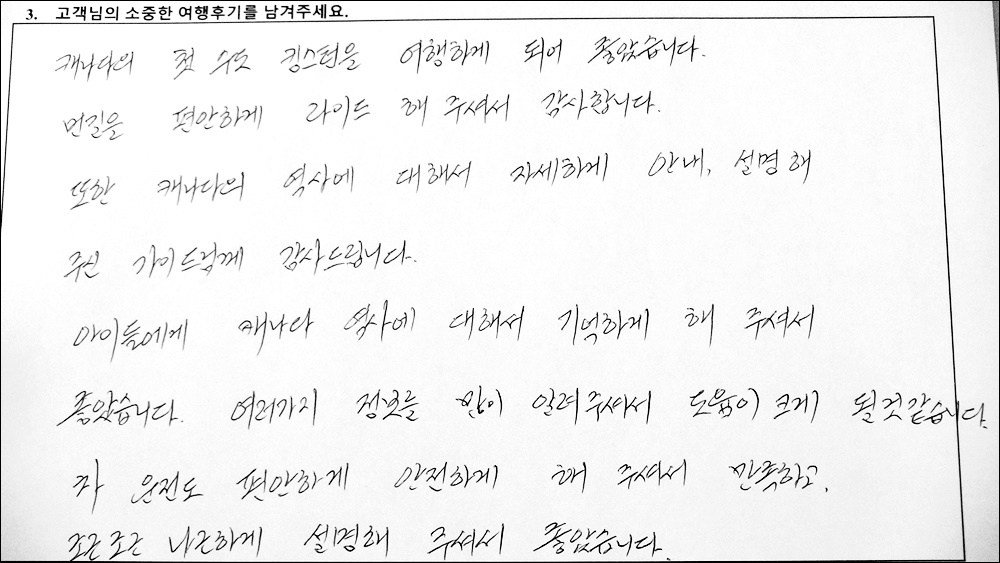 3. 고객님의 소중한 여행후기를 남겨주세요.
캐나다의 첫 수도 킹스턴을 여행하게 되어 좋았습니다.
먼길을 편안하게 라이드 해 주셔서 감사합니다.
또한 캐나다의 역사에 대해서 자세하게 안내, 설명해
주신 가이드님께 감사드립니다.
아이들에게 캐나다 역사에 대해서 기억하게 해 주셔서
좋았습니다. 여러가지 정보를 많이 알려주셔서 도움이 크게 될것 같습니다.
차 운전도 편안하게 안전하게 해 주셔서 만족하고,
조근조근 나근하게 설명해 주셔서 좋았습니다.